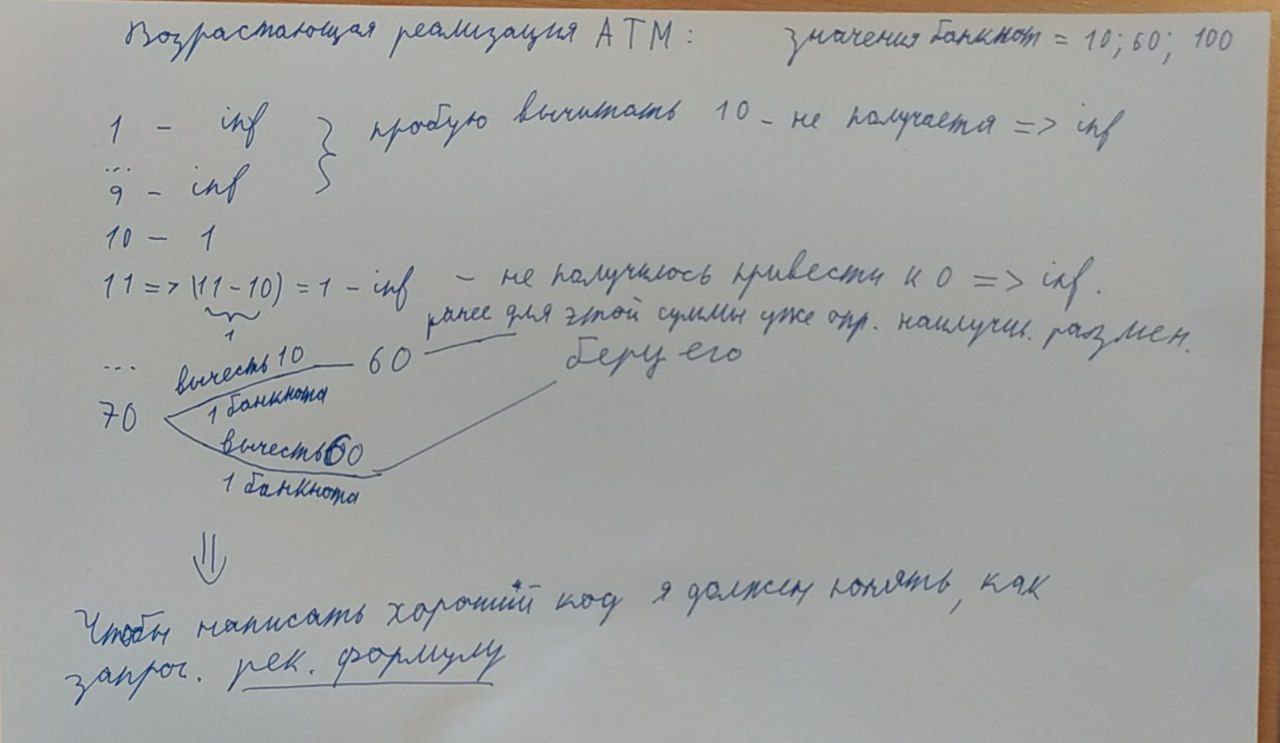 Возрастающая реализация АТМ: значения банкнот = 10; 60; 100
1 - inf } пробую вычитать 10 - не получается => inf
...
9 - inf
10 - 1
11 => (11-10) = 1 - inf - не получилось привести к 0 => inf.
1
ранее для этой суммы уже опр. наилучш. размен.
беру его
...
вычесть 10 60
70 1 банкнота
вычесть 60
1 банкнота
⇓
Чтобы написать хороший код я должен понять, как
запрог. рек. формулу